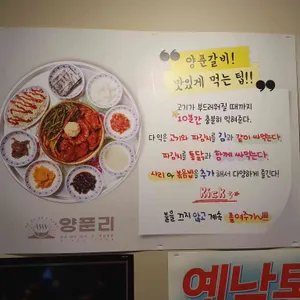 양푼갈비!
맛있게 먹는 팁!!
고기가 부드러워질 때까지
10분간 충분히 익혀준다.
다 익은 고기와 파김치를 김과 같이 싸먹는다.
파김치를 돌돌말아 함께 싸먹는다.
사리 or 볶음밥을 추가해서 다양하게 즐긴다!
Kick
불을 끄지 않고 계속 졸여주기!!!
양푼리
예닐토